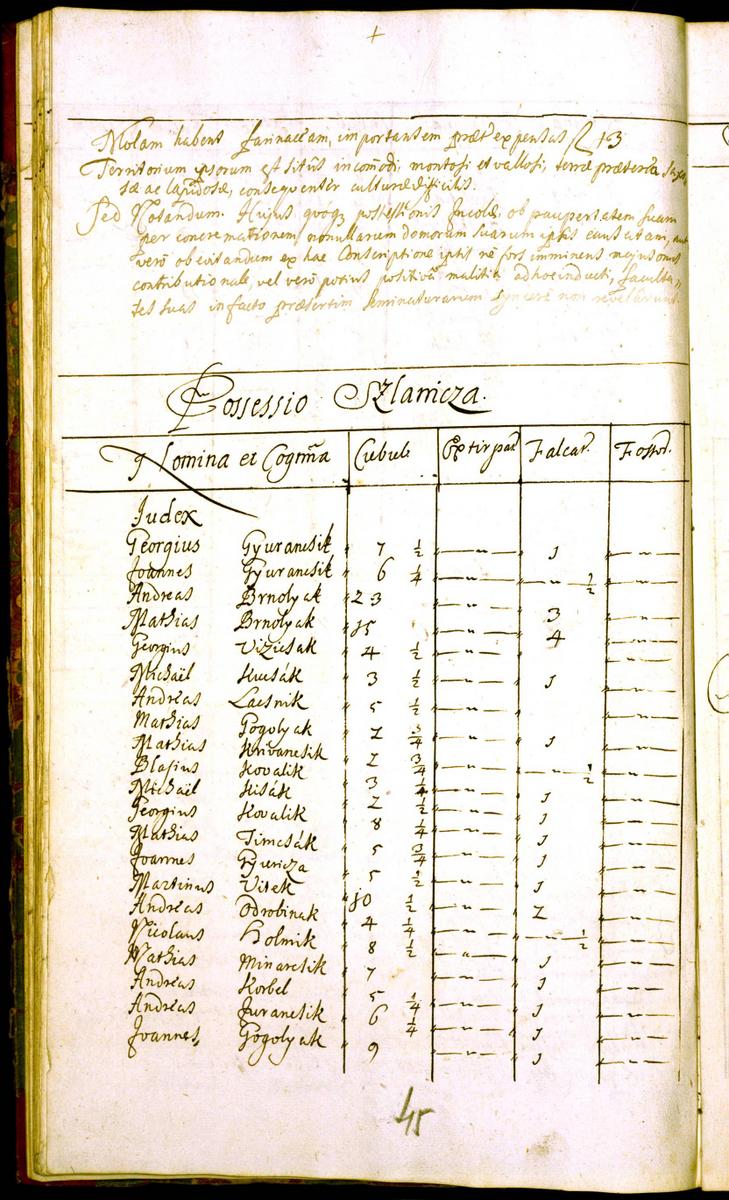 Molam habent farinaceam, importantem præter expensas fl 13
Territorium ipsorum est situs incom̃odi, montosi et vallosi, terræ præterea
sæ ac lapidosæ, consequenter culturæ difficilis.
Sed Notandum. Hujus quóq₃ possessionis Incolæ, ob paupertatem suam
per concremationem nonullarum domorum suarum ipsis causatam, aut
verò ob evitandum ex hac Conscriptione ipsis fors imminens majus onus
contributionale, vel verò potius positivâ malitiâ ad hoc inducti, faculta„
tes suas in facto præsertim seminaturarum syncerè non revelârunt.
Possessio Szlanicza.
Nomina et Cogm̃a Cubul: Extirpat Falcat. Fossor.
Iudex
Georgius Gyurancsik 7 ½ „ 1 „
Joannes Gyurancsik 6 ¼ „ „ ½ „
Andreas Brnolyak 23 „ 3 „
Mathias Brnolyak 15 „ 4 „
Georgius Vizicsak 4 ½ „ „
Michaël Kucsák 3 ½ „ 1 „
Andreas Lacsnik 5 ½ „ „
Mathias Gogolyak 2 ¾ „ 1 „
Mathias Krivanesik 2 ¾ „ „ ½ „
Blasius Kovalik 3 ¼ „
Michaël Kisák 2 ½ „ 1 „
Georgius Kovalik 8 ¼ „ 1 „
Mathias Timcsák 5 ¾ „ 1 „
Joannes Gyuricza 5 ½ „ 1 „
Martinus Vitek 10 ½ „ 2 „
Andreas Odrobinak 4 ¼ „ „ ½ „
Nicolaus Holmik 8 ½ „ 1 „
Mathias Minarcsik 7 „ 1 „
Andreas Korbel 5 ¼ „ 1 „
Andreas Jurancsik 6 ¼ „ 1 „
Joannes Gogolyak 9 „ 1 „
45